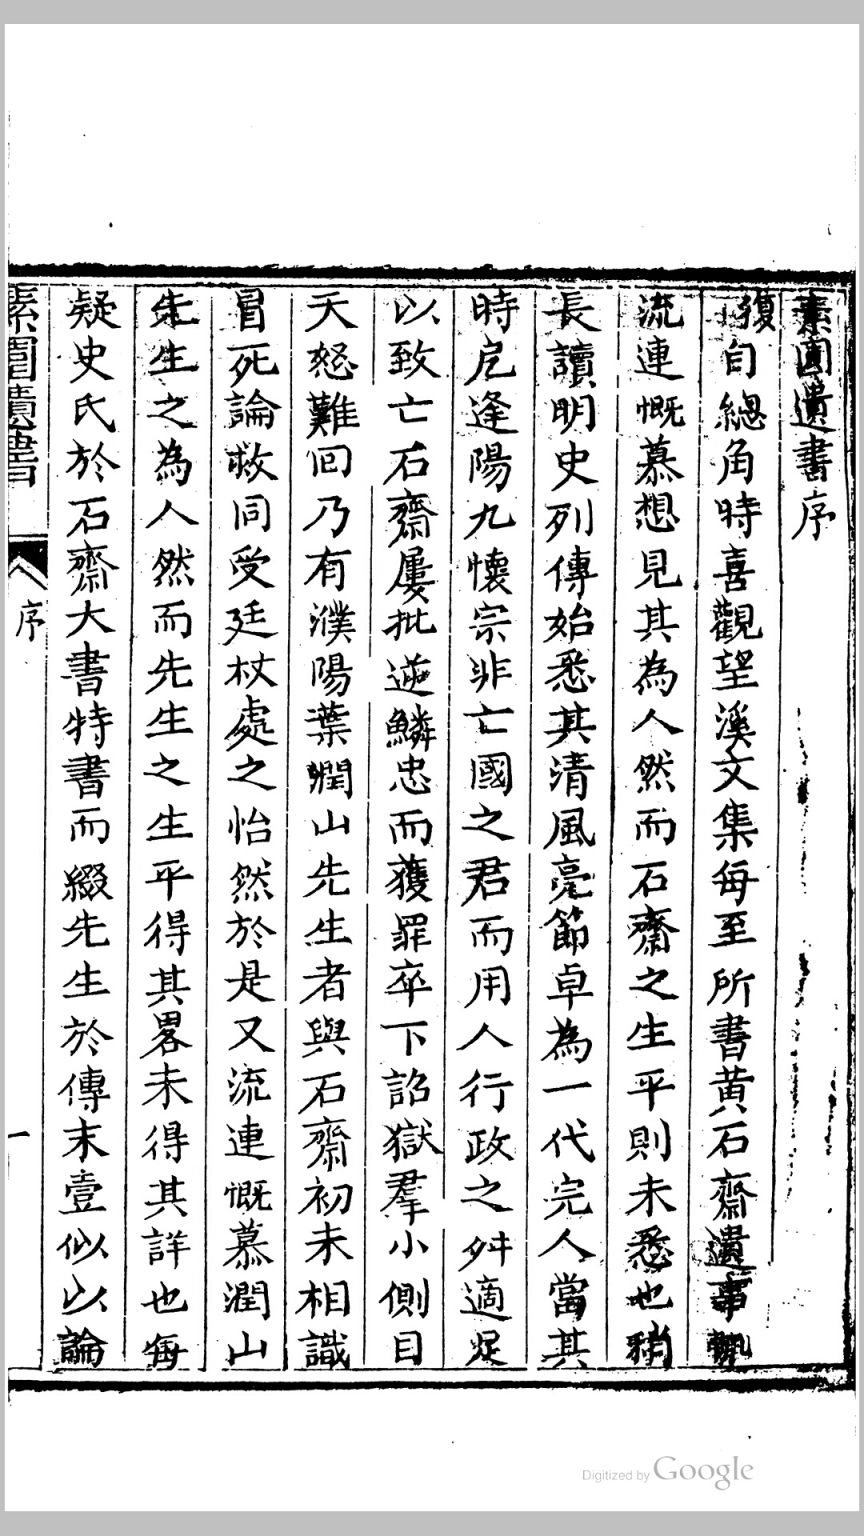 素園遺書序
復自總角時喜觀望溪文集每至所書黃石齋遺事輒
流連慨慕想見其為人然而石齋之生平則未悉也稍
長讀明史列傳始悉其清風亮節卓為一代完人當其
時戹逢陽九懷宗非亡國之君而用人行政之舛適足
以致亡石齋屢批逆鱗忠而獲罪卒下詔獄羣小側目
天怒難回乃有濮陽葉潤山先生者與石齋初未相識
冒死論救同受廷杖處之怡然於是又流連慨慕潤山
先生之為人然而先生之生平得其畧未得其詳也每
疑史氏於石齋大書特書而綴先生於傳末壹似以論
素園遺書
序
一
Digitized by Google